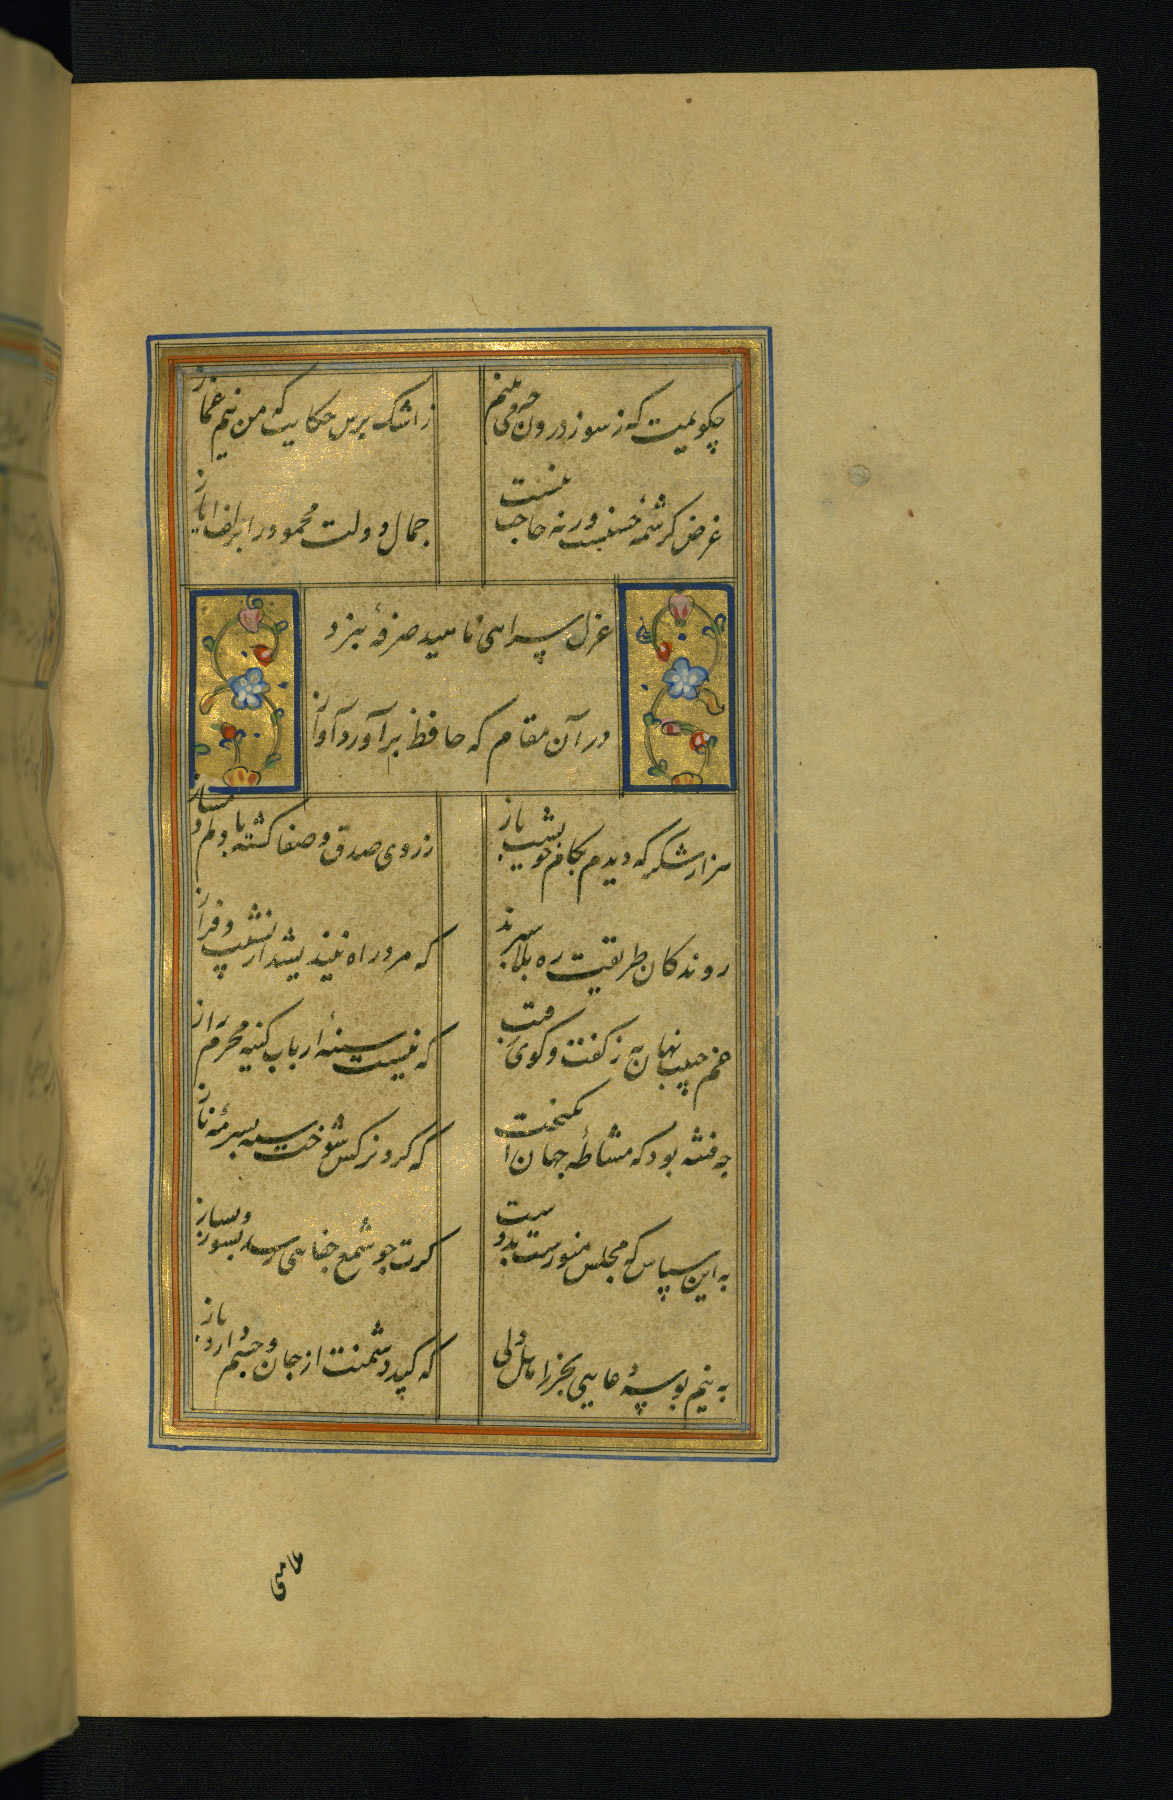 چکویمت که ز سوز درون چه می بینم
ز اشک پرس حکایت که من نیم غماز
غرض کرشمه حسنست ورنه حاجت نیست
جمال دولت محمود را بزلف ایاز
غزل سرایی ناهید صرفهٔ نبرد
در آن مقام که حافظ برآورد آواز
هزار شکر که دیدم بکام خویشت باز
ز روی صدق و صفا کشته با دلم دمساز
روندکان طریقت ره بلا سپرند
که مرد راه نیندیشد از نشیب و فراز
غم حبیب نهان به ز کفت و کوی رقیب
که نیست سینهٔ ارباب کینه محرم راز
چه فتنه بود که مشاطه جهان انکیخت
که کرد نرکس شوخت سیه بسرمهٔ ناز
به این سپاس که مجلس منورست بدوست
کرت چو شمع جفایی رسد بسوز و بساز
به نیم بوسه دعایی بخر ز اهل دلی
که کید دشمنت از جان و جسم دارد باز